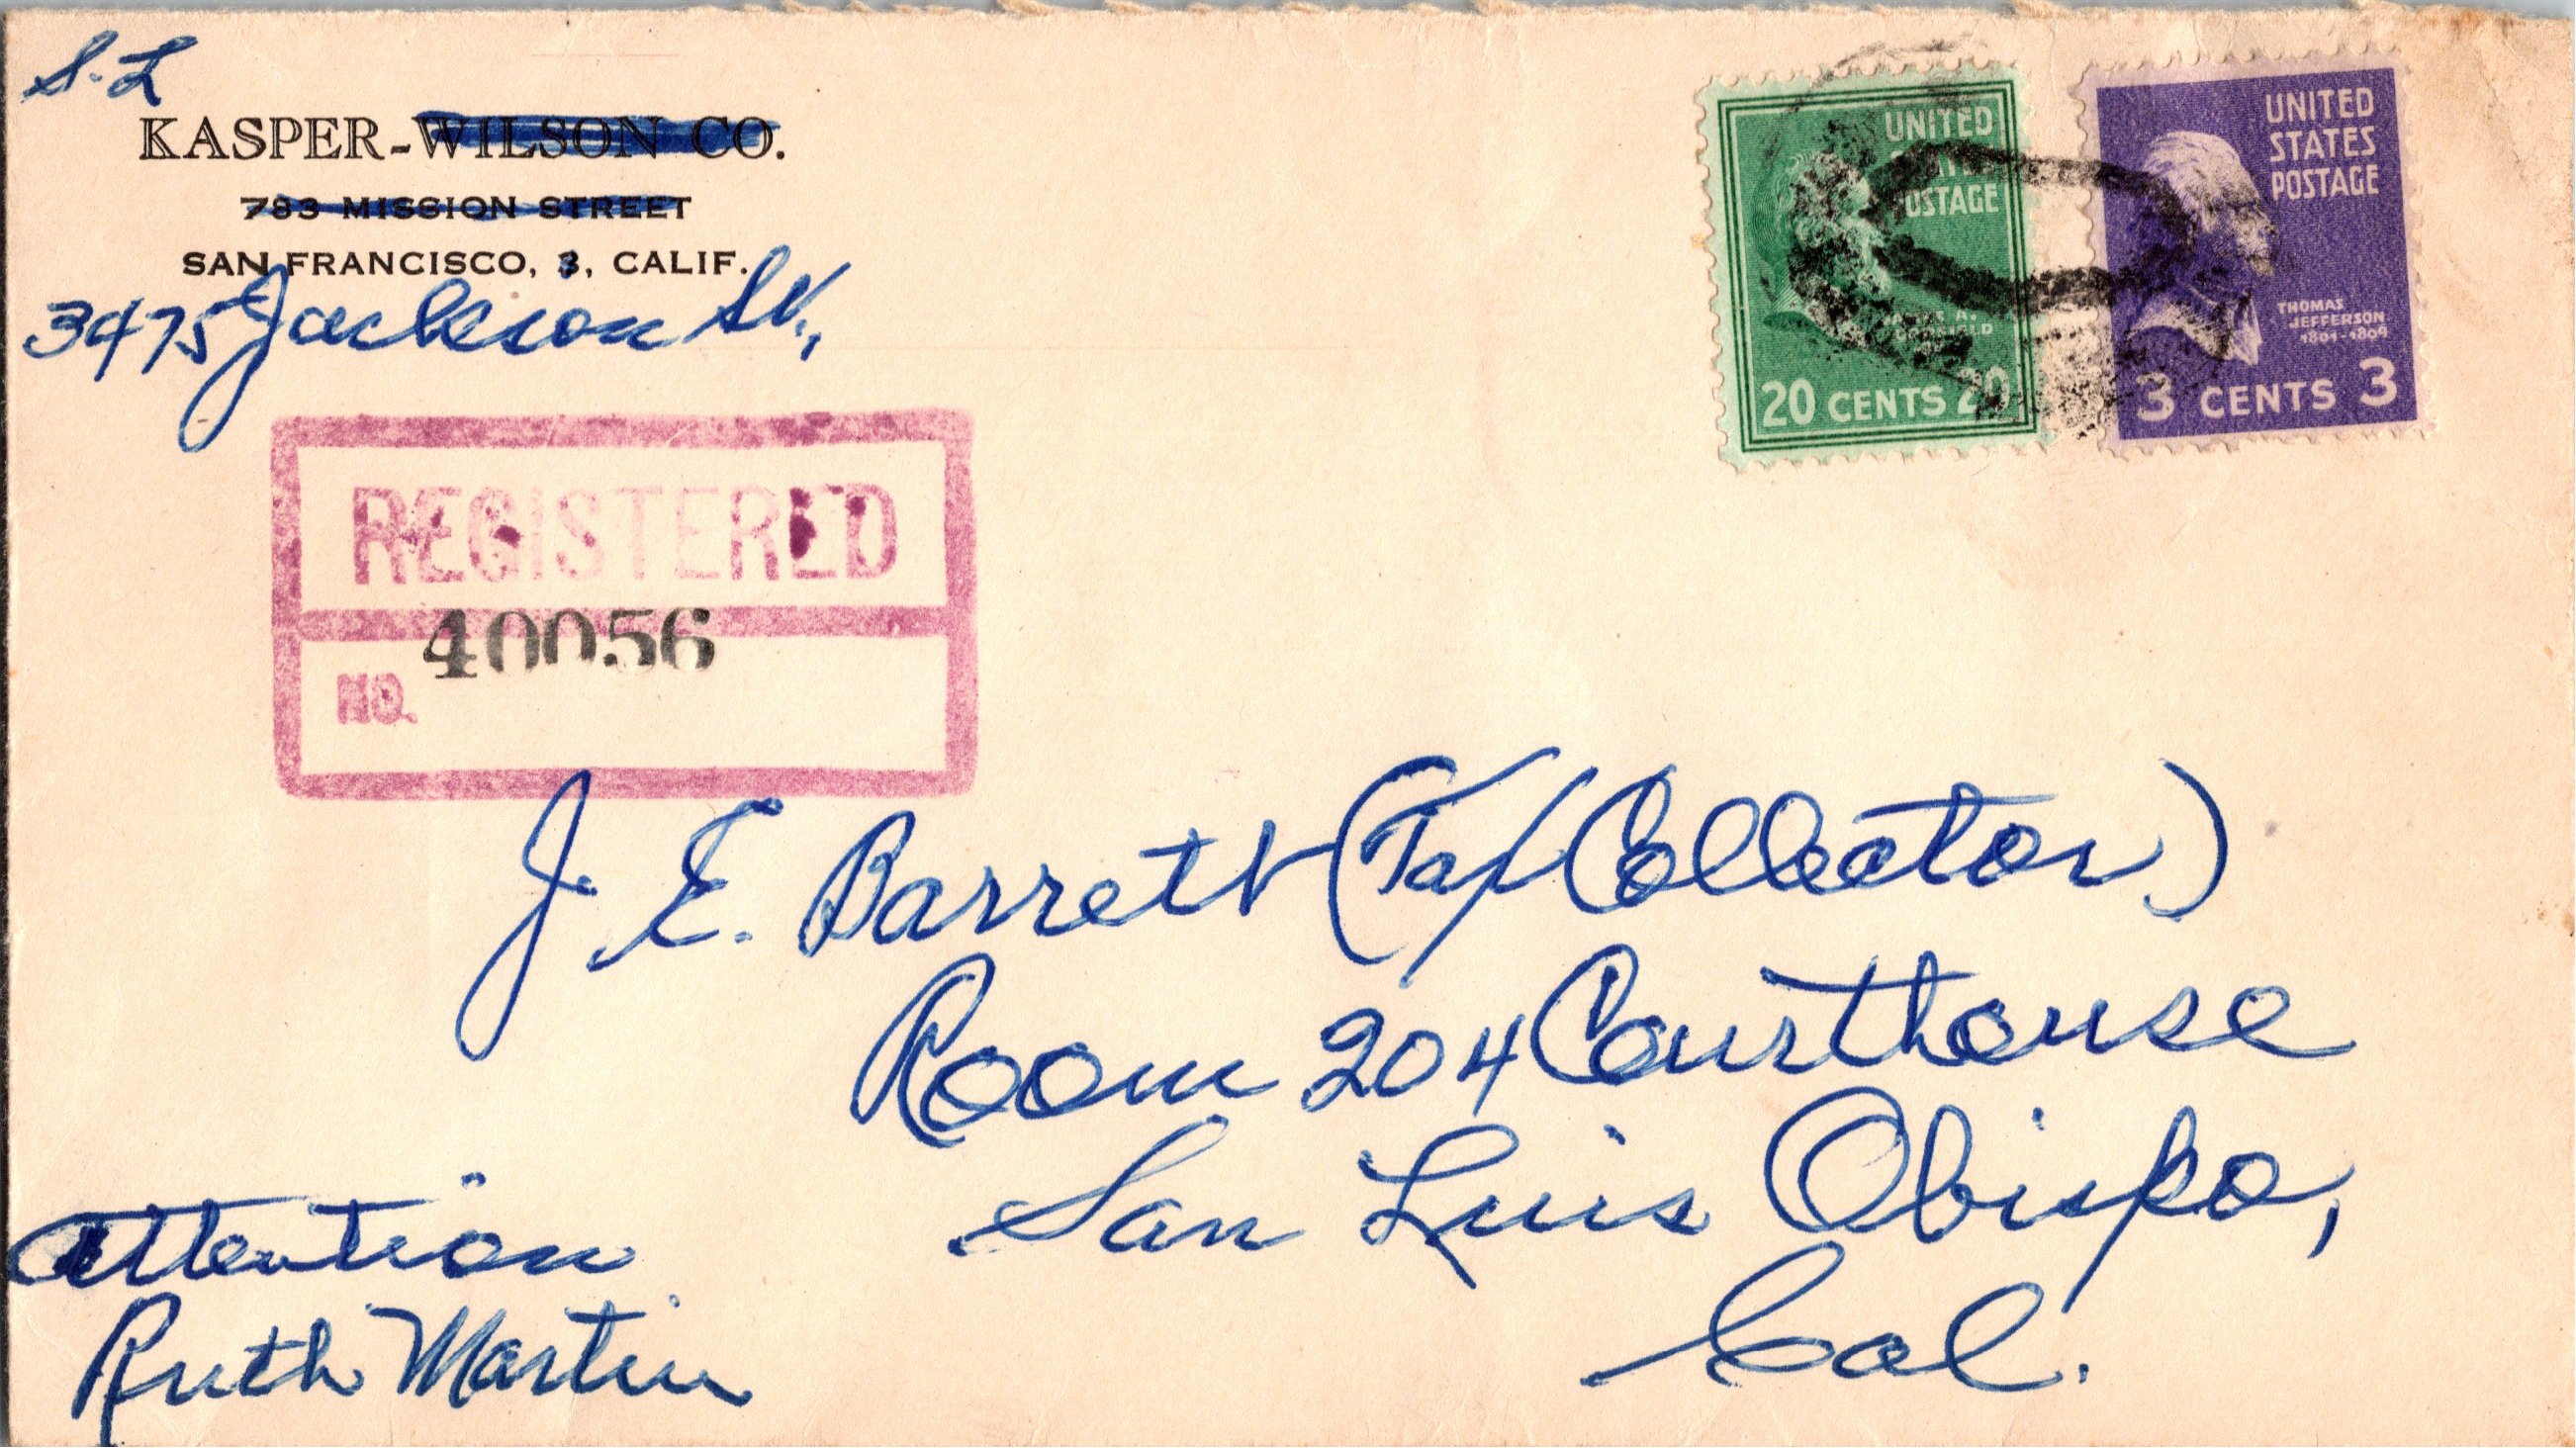 S. L
KASPER-WILSON CO.
783 MISSION STREET
SAN FRANCISCO, 3, CALIF.
3475 Jackson St.,
REGISTERED
40056
NO.
UNITED
STATES
POSTAGE
JAMES A.
GARFIELD
20 CENTS 20
UNITED
STATES
POSTAGE
THOMAS
JEFFERSON
1801-1809
3 CENTS 3
J. E. Barrett (Tax Collector)
Room 204 Courthouse
San Luis Obispo,
Cal.
Attention
Ruth Martin